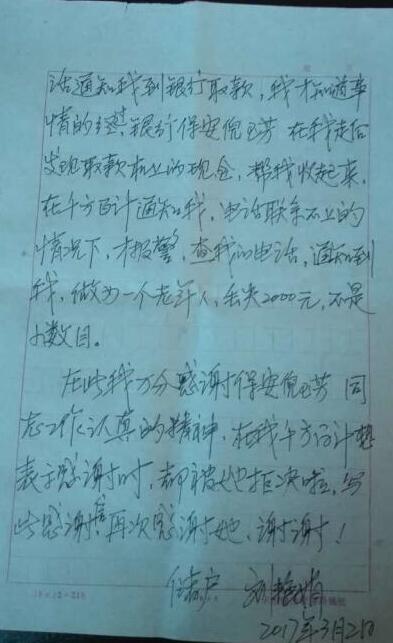 话通知我到银行取款，我才知道事
情的经过，银行保安倪玉芳 在我走后
发现取款机上的现金，帮我收起来，
在千方百计通知我，电话联系不上的
情况下，才报警，查我的电话，通知到
我，做为一个老年人，丢失2000元，不是
小数目。
在此我万分感谢保安倪玉芳 同
志工作认真的精神，在我千方百计想
表示感谢时，却被她拒决啦，写
此感谢信，再次感谢她，谢谢！
储户 刘
2017年3月2日